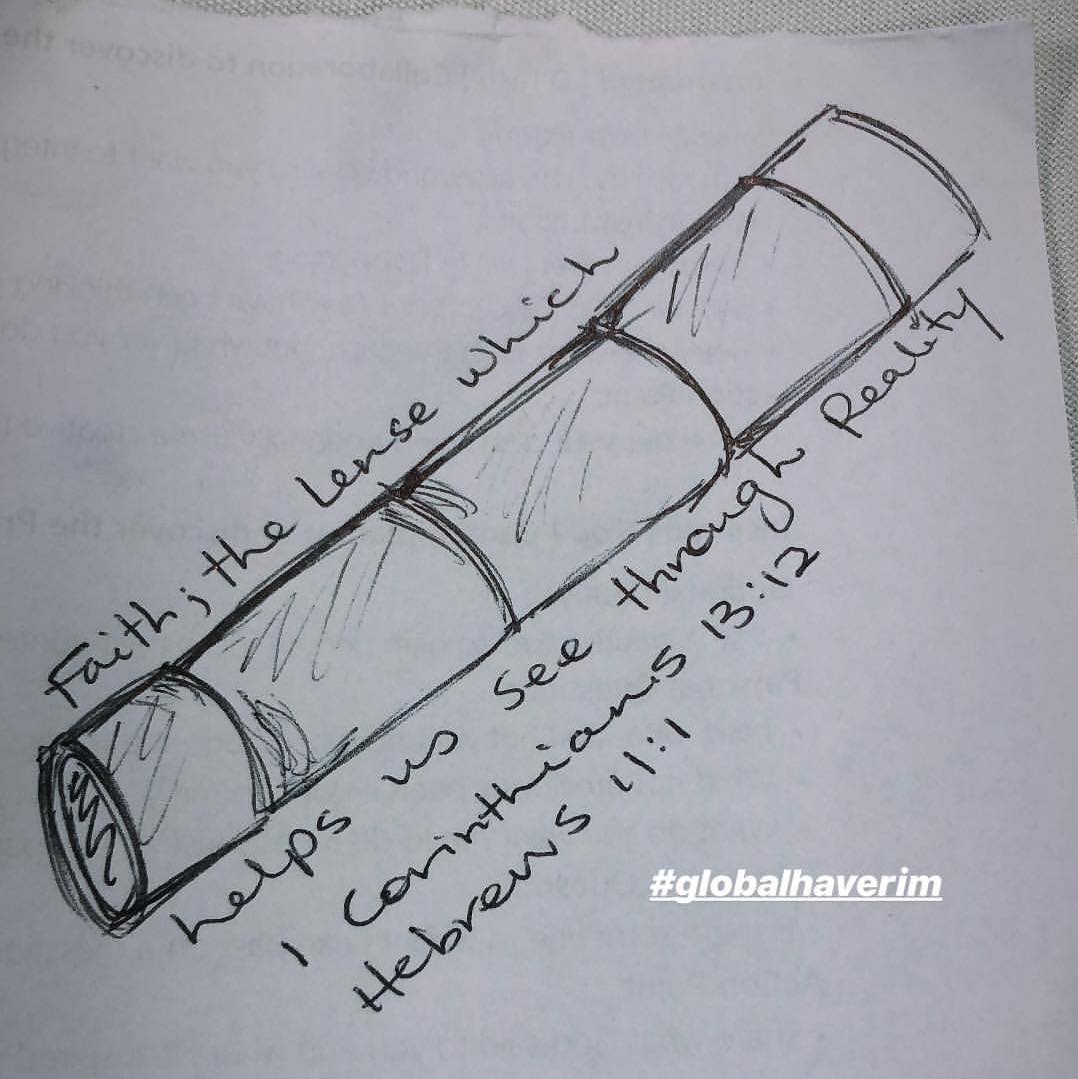 Faith; the Lense which
helps us see through Reality
1 Corinthians 13:12
Hebrews 11:1
#globalhaverim